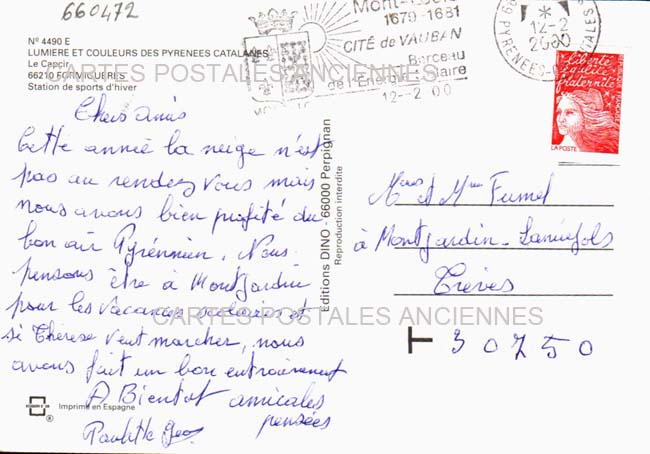 660472
N° 4490 E
LUMIERE ET COULEURS DES PYRENEES CATALANES
Le Capcir
66210 FORMIGUERES
Station de sports d'hiver
CARTES POSTALES ANCIENNES
Mont-Louis
1679-1681
CITÉ de VAUBAN
Berceau
de l'Energie Solaire
12-2 00
12-2
2000
liberté
égalité
fraternité
LA POSTE
Chers amis
Cette année la neige n'est
pas au rendez vous mais
nous avons bien profité du
bon air Pyrénnien. Nous
pensons être à Montjardin
pour les vacances scolaires et
si Thérèse veut marcher, nous
avons fait un bon entrainement
A Bientot amicales
pensées
Paulette
Editions DINO - 66000 Perpignan
Reproduction interdite
et Mme Fumel
à Montjardin - Lanuéjols
Trèves
30750
CARTES POSTALES ANCIENNES
Imprimé en Espagne